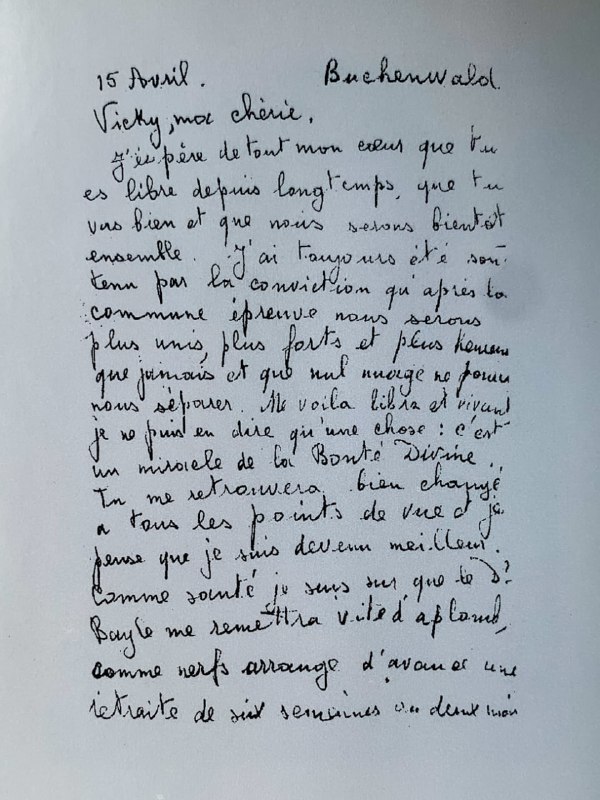 15 Avril. Buchenwald.
Vicky, ma chérie,
J'espère de tout mon cœur que tu
es libre depuis longtemps, que tu
vas bien et que nous serons bientôt
ensemble. J'ai toujours été sou-
tenu par la conviction qu'après la
commune épreuve nous serons
plus unis, plus forts et plus
que jamais et que nul nuage ne pourra
nous séparer. Me voila libre et vivant
je ne puis en dire qu'une chose : c'est
un miracle de la Bonté Divine.
Tu me retrouvera bien changé
a tous les points de vue et je
pense que je suis devenu meilleur.
Comme santé je suis sur que le Dr
Bayle me remettra vite d'aplomb,
comme nerfs arrange d'avance une
retraite de six semaines ou deux mois